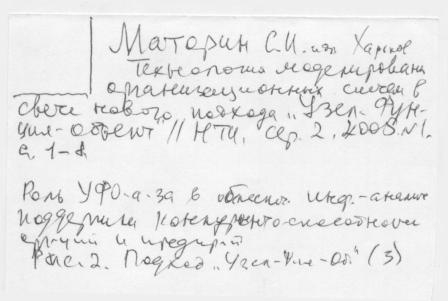 Маторин С.И. Харьков
Технология моделирования
организационных систем в
свете нового подхода „Узел-Фун-
ция-Объект" // НТИ, сер. 2, 2005. N1.
с. 1-8
Роль УФО-а-за в инф.-аналит.
поддержки конкурентоспособности
и предприятий
Рис. 2. Подход „Узел-Фия-Об" (3)